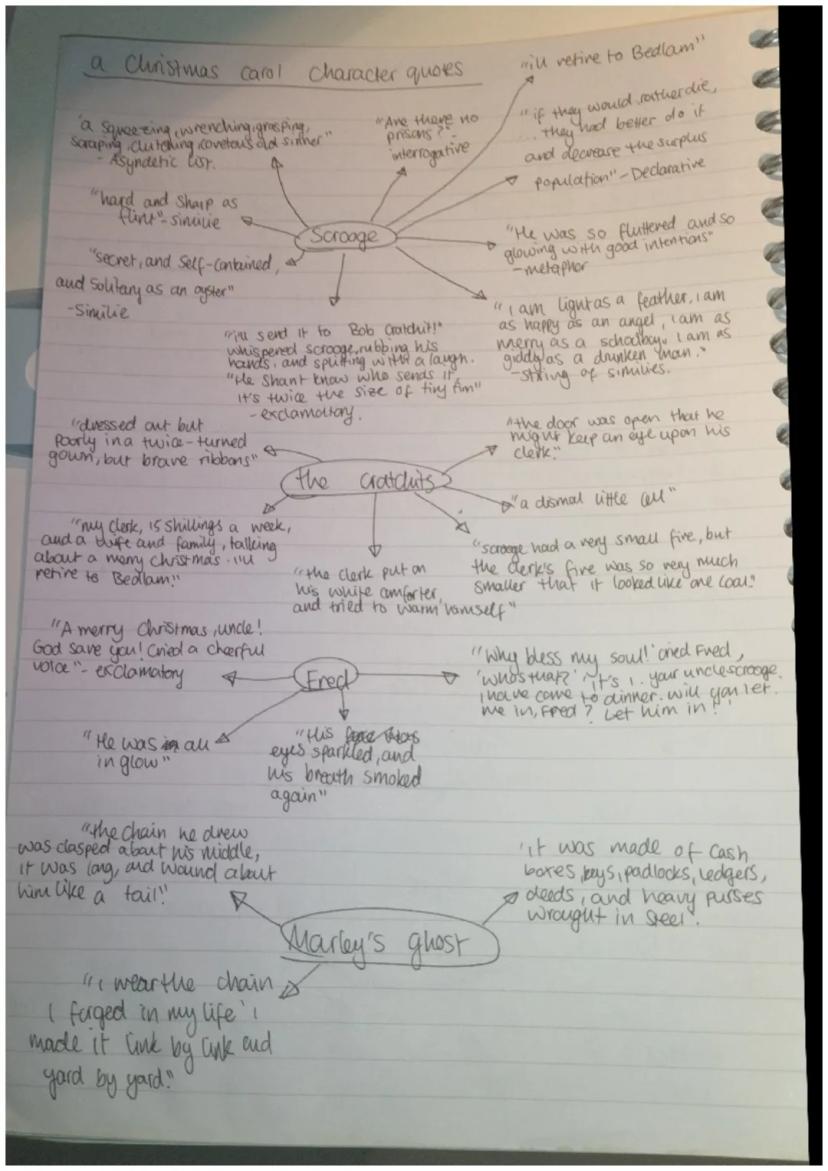 a Christmas carol character quotes
"ill retire to Bedlam"
"a squeezing, wrenching, grasping,
scraping, clutching covetous old sinner"
- Asyndetic list.
"Are there no
prisons?" -
interrogative
"if they would rather die,
... they had better do it
and decrease the surplus
population" - Declarative
"hard and sharp as
flint" - similie
Scrooge
"He was so fluttered and so
glowing with good intentions"
- metaphor
"secret, and self-contained,
and solitary as an oyster"
- Similie
"i'll send it to Bob Cratchit!"
whispered scrooge, rubbing his
hands, and splitting with a laugh.
"He shant know who sends it,
it's twice the size of tiny tim"
- exclamatory.
"I am light as a feather, i am
as happy as an angel, i am as
merry as a schoolboy. I am as
giddy as a drunken man."
- string of similies.
"dressed out but
poorly in a twice-turned
gown, but brave ribbons"
the cratchits
"the door was open that he
might keep an eye upon his
clerk."
"a dismal little cell"
"my clerk, 15 shillings a week,
and a wife and family, talking
about a merry christmas. i'll
retire to Bedlam."
"the clerk put on
his white comforter,
and tried to warm himself"
"scrooge had a very small fire, but
the clerk's fire was so very much
smaller that it looked like one coal."
"A merry Christmas, uncle!
God save you! cried a cheerful
voice" - exclamatory
Fred
"Why bless my soul!' cried Fred,
'who's that?' ~ it's i. your uncle scrooge.
i have come to dinner. will you let
me in, Fred? Let him in!'
"He was all
in glow"
"His
eyes sparkled, and
his breath smoked
again"
"the chain he drew
was clasped about his middle,
it was long, and wound about
him like a tail."
'it was made of cash
boxes, keys, padlocks, ledgers,
deeds, and heavy purses
wrought in steel'.
Marley's ghost
"i wear the chain
i forged in my life' i
made it link by link and
yard by yard."